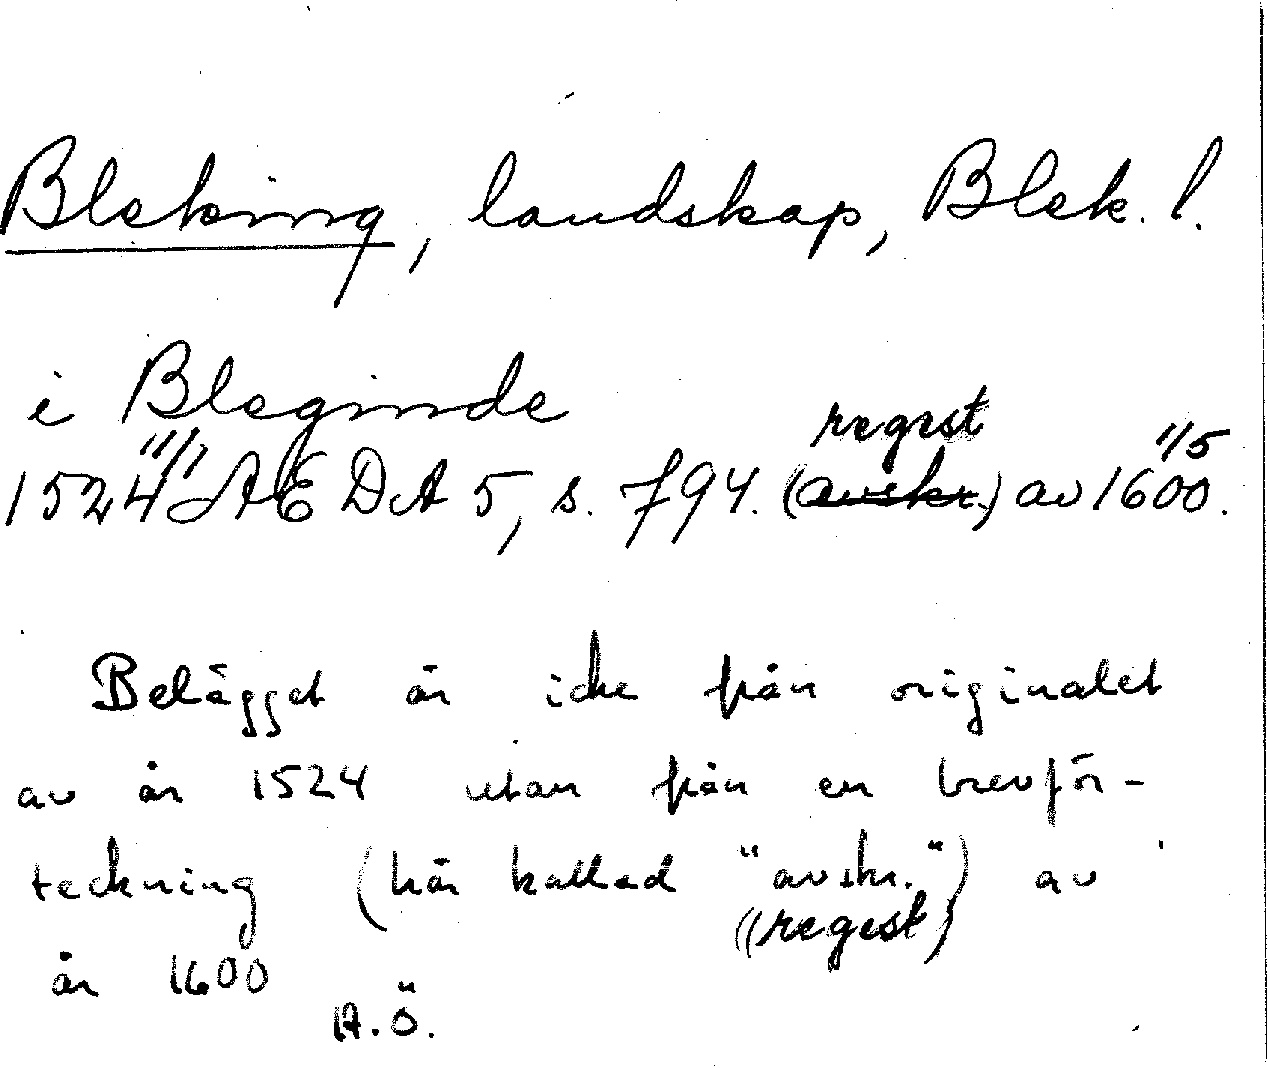 Bleking, landskap, Blek. l.
i Bleginde
regest 1/5
1524 ÆDA 5, s. 794. (avskr.) av 1600.
Belägget är icke från originalet
av år 1524 utan från en brevför-
teckning (här kallad "avskr.") av
((regest)
år 1600
A.Ö.